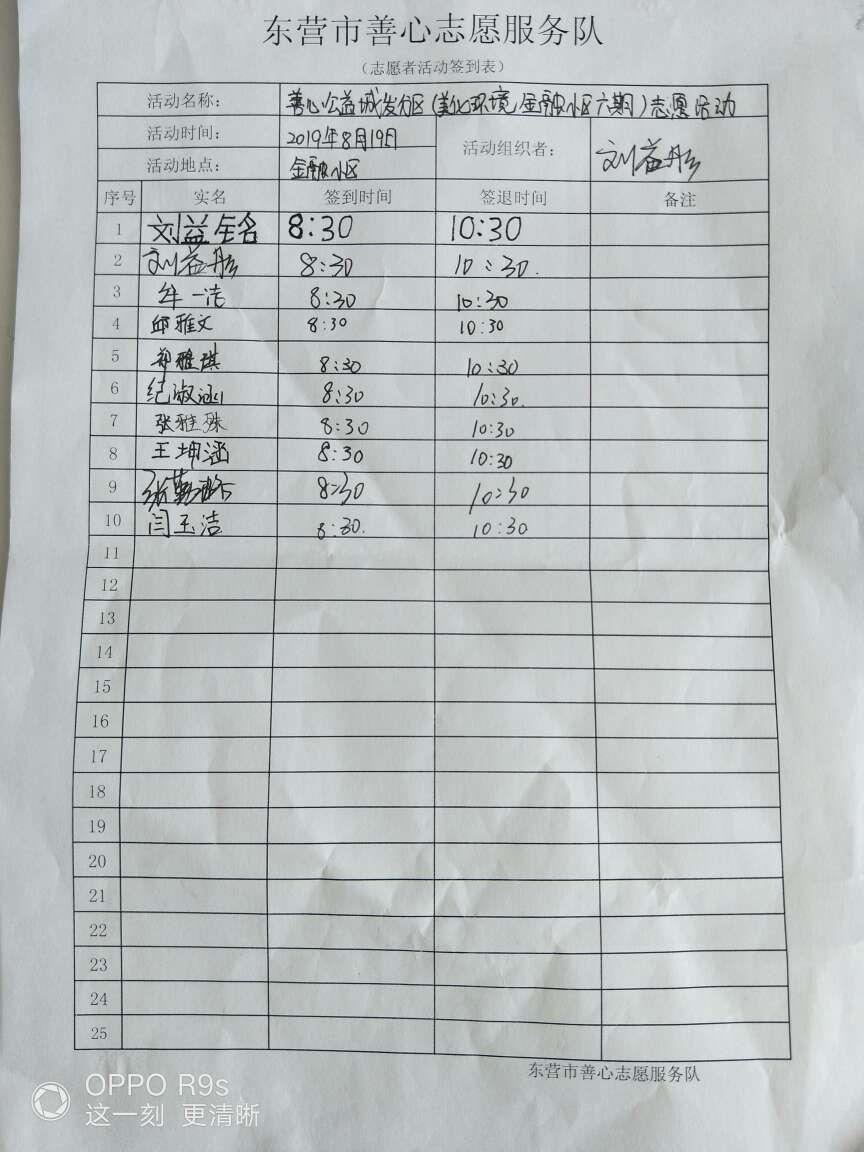 东营市善心志愿服务队
（志愿者活动签到表）
活动名称： 善心公益城发分区（美化环境 金融小区六期）志愿活动
活动时间： 2019年8月19日 活动组织者： 刘益彤
活动地点： 金融小区
序号 实名 签到时间 签退时间 备注
1 刘益铭 8:30 10:30
2 刘益彤 8:30 10:30.
3 牟一洁 8:30 10:30
4 邱雅文 8:30 10:30
5 郑雅琪 8:30 10:30
6 纪淑涵 8:30 10:30.
7 张雅殊 8:30 10:30
8 王坤涵 8:30 10:30
9 张 8:30 10:30
10 闫玉洁 8:30. 10:30
11
12
13
14
15
16
17
18
19
20
21
22
23
24
25
东营市善心志愿服务队
OPPO R9s
这一刻 更清晰